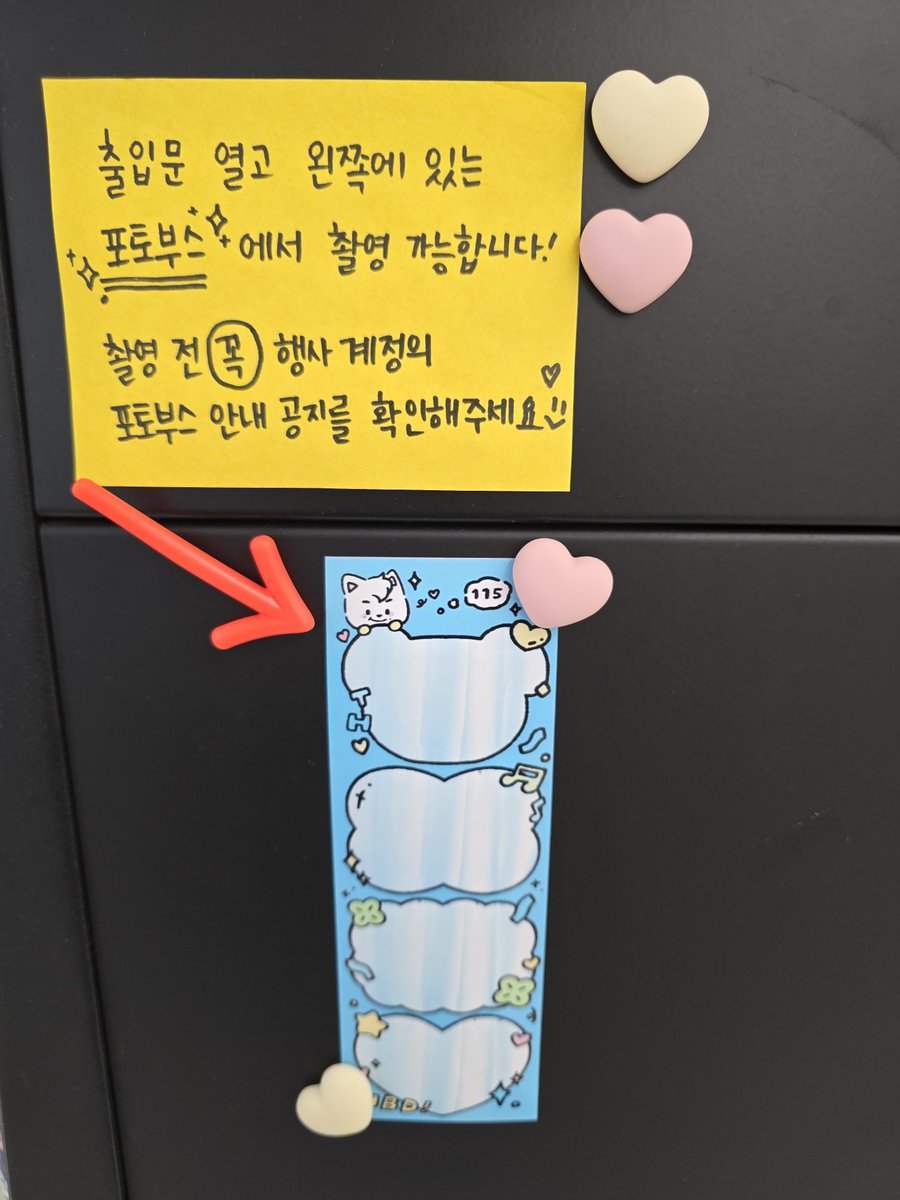 출입문 열고 왼쪽에 있는
포토부스 에서 촬영 가능합니다!
촬영 전 꼭 행사 계정의
포토부스 안내 공지를 확인해주세요
115
T
H
BD!